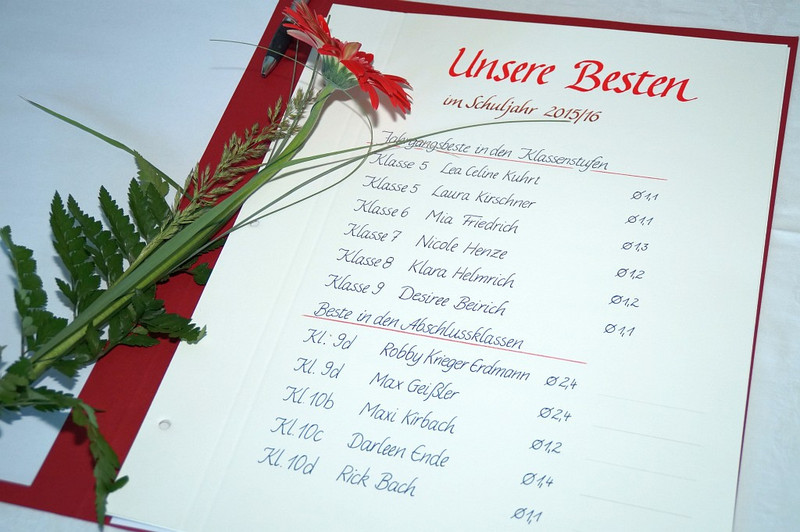 Unsere Besten
im Schuljahr 2015/16
Jahrgangsbeste in den Klassenstufen
Klasse 5 Lea Celine Kuhrt Ø 1,1
Klasse 5 Laura Kirschner Ø 1,1
Klasse 6 Mia Friedrich Ø 1,3
Klasse 7 Nicole Henze Ø 1,2
Klasse 8 Klara Helmrich Ø 1,2
Klasse 9 Desiree Beirich Ø 1,1
Beste in den Abschlussklassen
Kl.: 9d Robby Krieger Erdmann Ø 2,4
Kl. 9d Max Geißler Ø 2,4
Kl. 10b Maxi Kirbach Ø 1,2
Kl. 10c Darleen Ende Ø 1,4
Kl. 10d Rick Bach Ø 1,1